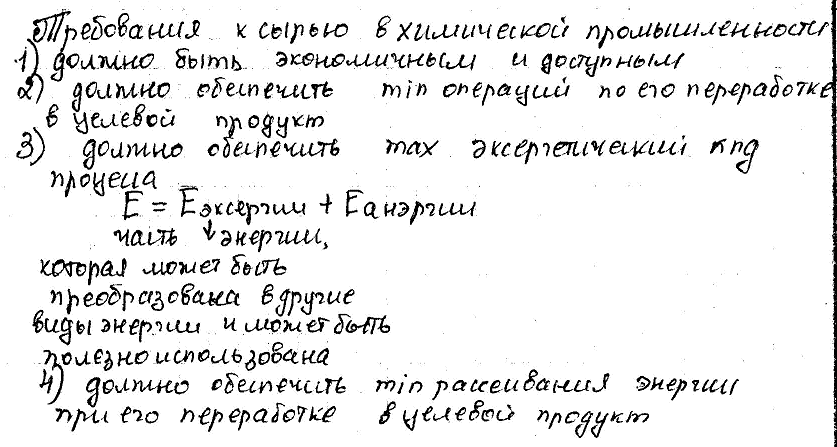 Требования к сырью в химической промышленности
1) должно быть экономичным и доступным
2) должно обеспечить min операций по его переработке
в целевой продукт
3) должно обеспечить max эксергетический кпд
процесса
E = Eэксергии + Eанэргии
часть ↓ энергии,
которая может быть
преобразована в другие
виды энергии и может быть
полезно использована
4) должно обеспечить min рассеивания энергии
при его переработке в целевой продукт